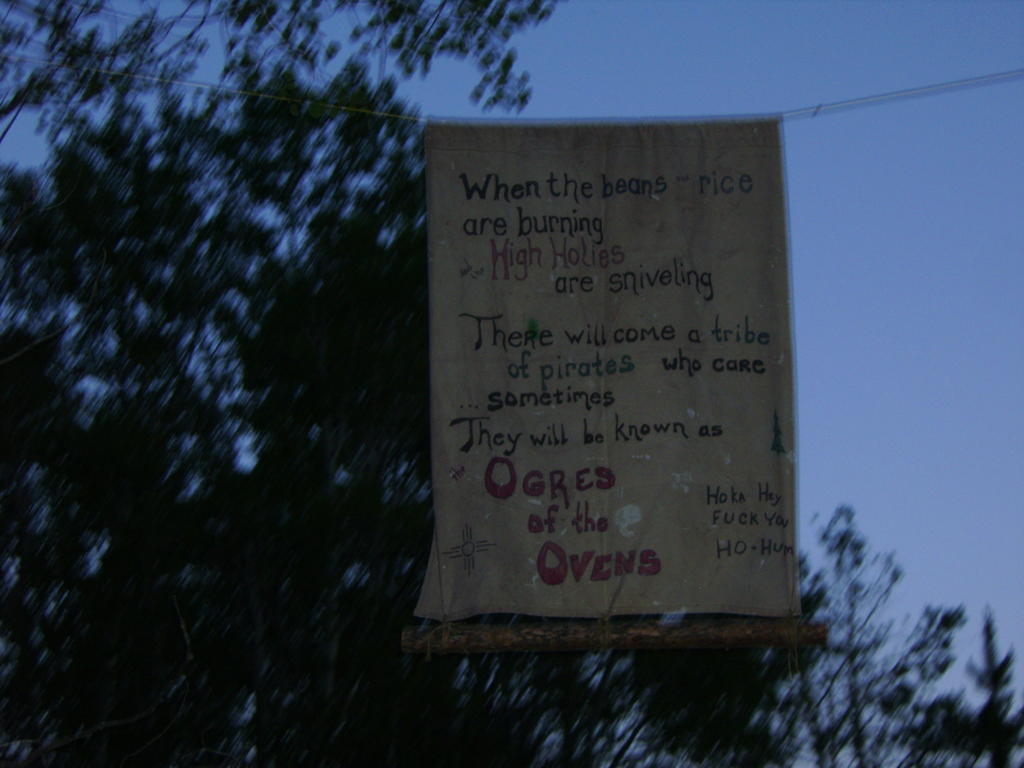 When the beans - rice
are burning
the High Holies
are sniveling
There will come a tribe
of pirates who care
... sometimes
They will be known as
the OGRES
of the
OVENS
Hoka Hey
FUCK YOU
HO-HUM